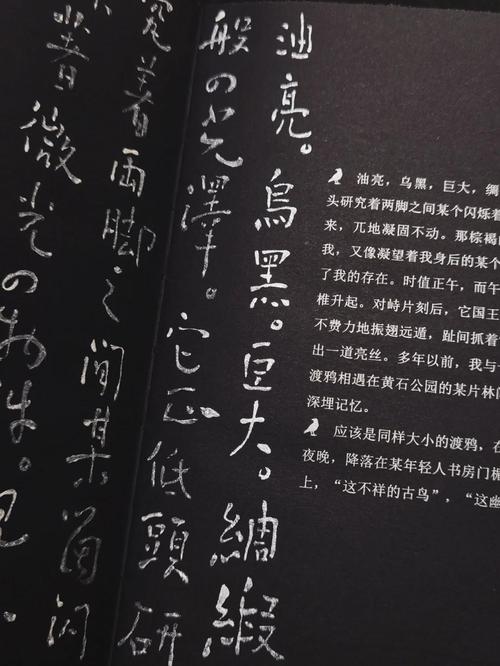 油亮。烏黑。巨大。綢緞
般の光澤。它正低頭研
究着兩脚之間某個閃
着微光の物件。
油亮，乌黑，巨大，绸
头研究着两脚之间某个闪烁着
来，兀地凝固不动。那棕褐
我，又像凝望着我身后的某个
了我的存在。时值正午，而午
椎升起。对峙片刻后，它国王
不费力地振翅远遁，趾间抓着
出一道亮丝。多年以前，我与
渡鸦相遇在黄石公园的某片林间
深埋记忆。
应该是同样大小的渡鸦，在
夜晚，降落在某年轻人书房门楣
上，“这不祥的古鸟”，“这幽